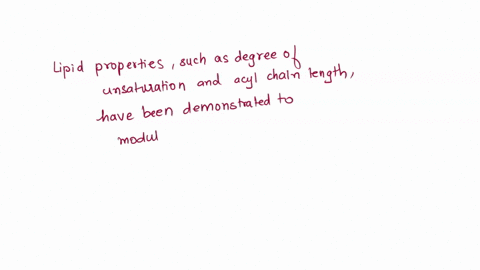 Lipid properties, such as degree of
unsaturation and acyl chain length,
have been demonstrated to
modul